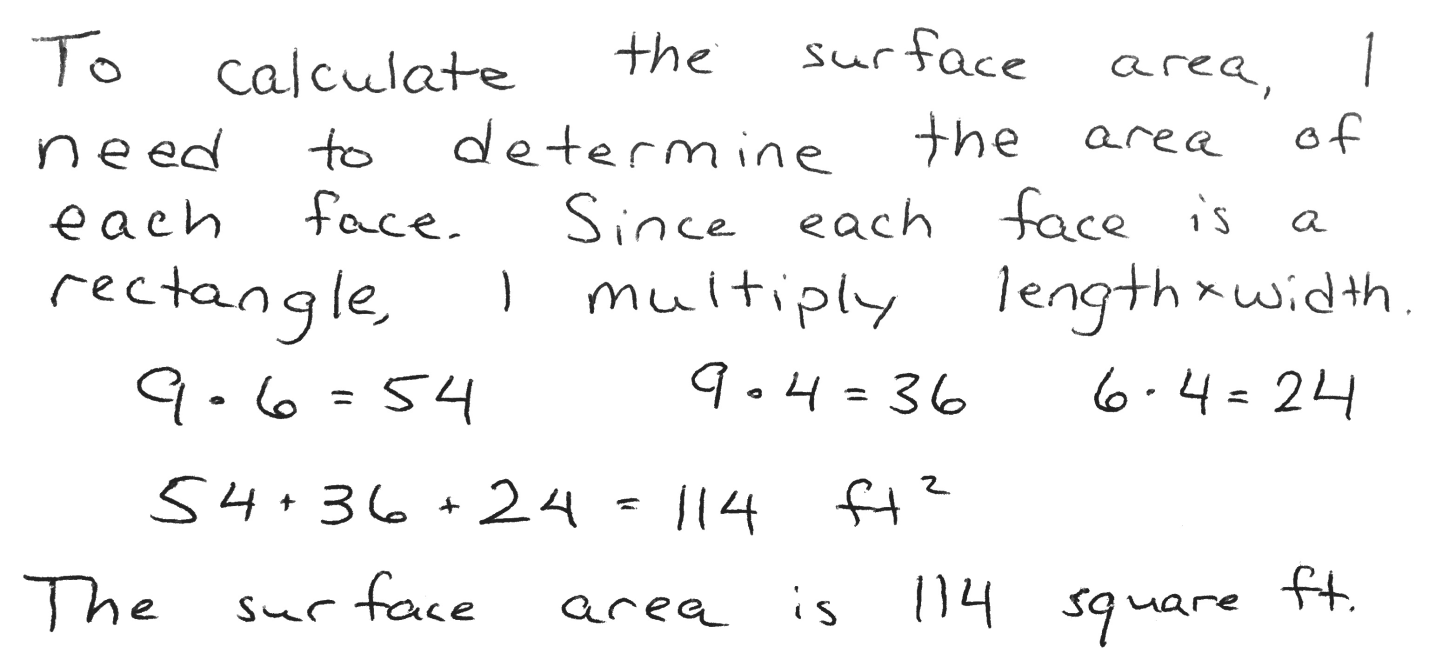 To calculate the surface area, I
need to determine the area of
each face. Since each face is a
rectangle, I multiply length × width.
9 · 6 = 54 9 · 4 = 36 6 · 4 = 24
54 + 36 + 24 = 114 ft²
The surface area is 114 square ft.